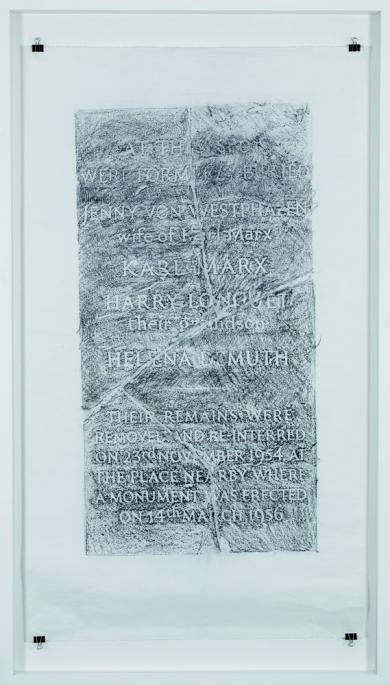 AT THIS SPOT
WERE FORMERLY BURIED
JENNY VON WESTPHALEN
wife of Karl Marx
KARL MARX
HARRY LONGUET
their grandson
HELENA DEMUTH
THEIR REMAINS WERE
REMOVED AND RE-INTERRED
ON 23rd NOVEMBER 1954 AT
THE PLACE NEARBY WHERE
A MONUMENT WAS ERECTED
ON 14th MARCH 1956